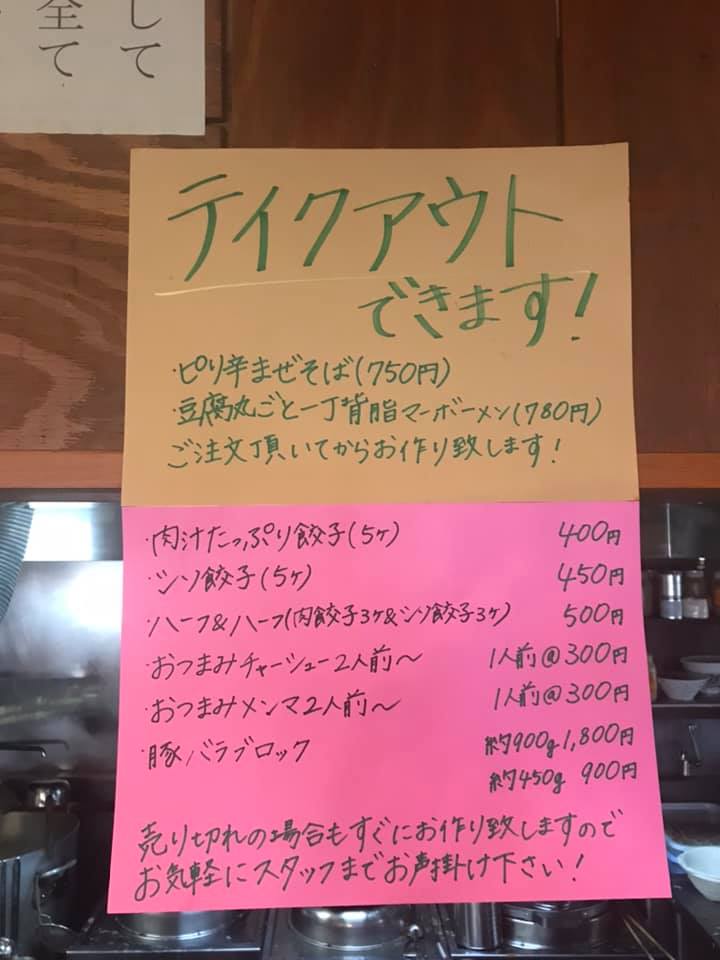 して
全て
テイクアウト
できます!
・ピリ辛まぜそば(750円)
・豆腐丸ごと一丁背脂マーボーメン(780円)
ご注文頂いてからお作り致します!
・肉汁たっぷり餃子(5ヶ) 400円
・シソ餃子(5ヶ) 450円
・ハーフ&ハーフ(肉餃子3ヶ&シソ餃子3ヶ) 500円
・おつまみチャーシュー2人前〜 1人前@300円
・おつまみメンマ2人前〜 1人前@300円
・豚バラブロック 約900g 1,800円
約450g 900円
売り切れの場合もすぐにお作り致しますので
お気軽にスタッフまでお声掛け下さい!